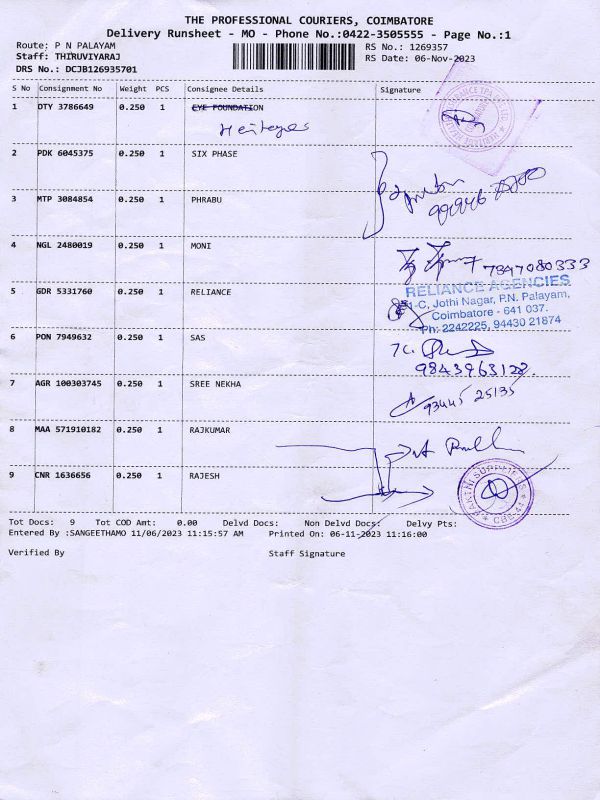 THE PROFESSIONAL COURIERS, COIMBATORE
Delivery Runsheet - MO - Phone No.:0422-3505555 - Page No.:1
Route: P N PALAYAM
Staff: THIRUVIYARAJ
DRS No.: DCJB126935701
RS No.: 1269357
RS Date: 06-Nov-2023
S No Consignment No Weight PCS Consignee Details Signature
1 DTY 3786649 0.250 1 EYE FOUNDATION
2 PDK 6045375 0.250 1 SIX PHASE
3 MTP 3084854 0.250 1 PHRABU
4 NGL 2480019 0.250 1 MONI
7397080333
5 GDR 5331760 0.250 1 RELIANCE
RELIANCE AGENCIES
1-C, Jothi Nagar, P.N. Palayam,
Coimbatore - 641 037.
Ph: 2242225, 94430 21874
6 PON 7949632 0.250 1 SAS
9843963128.
7 AGR 100303745 0.250 1 SREE NEKHA
93445 25135
8 MAA 571910182 0.250 1 RAJKUMAR
9 CNR 1636656 0.250 1 RAJESH
SAKTHI SUPPLIERS
CBE-41
Tot Docs: 9 Tot COD Amt: 0.00 Delvd Docs: Non Delvd Docs: Delvy Pts:
Entered By :SANGEETHAMO 11/06/2023 11:15:57 AM Printed On: 06-11-2023 11:16:00
Verified By Staff Signature